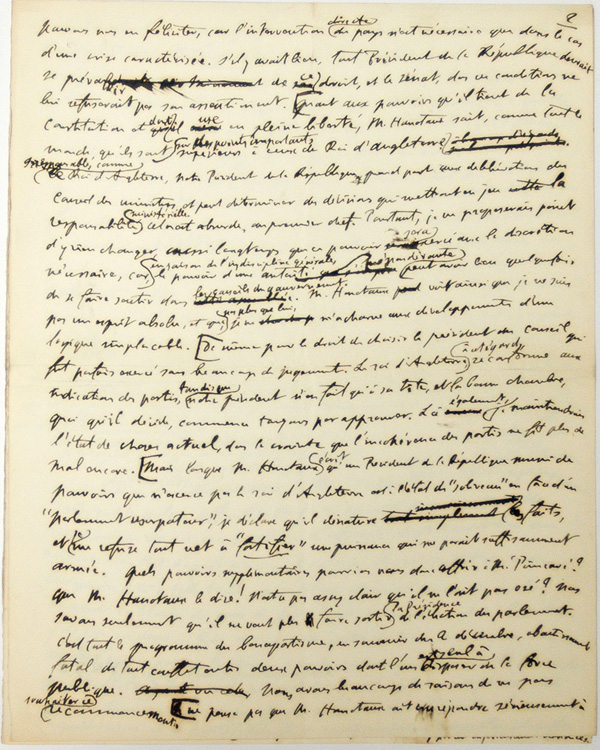 2
pouvons nous en féliciter, car l'intervention directe du pays n'est nécessaire que dans le cas
d'une crise caractérisée. S'il y avait lieu, tout Président de la République devrait
se prévaloir de ce droit, et le Sénat, dans ces conditions ne
lui refuserait pas son assentiment. [Quant aux pouvoirs qu'il tient de la
Constitution et dont il use en pleine liberté, M. Hanotaux sait, comme tout le
monde qu'ils sont supérieurs à ceux du Roi d'Angleterre
irresponsable, comme
le Roi d'Angleterre, notre Président de la République prend part aux délibérations du
Conseil des ministres, et peut déterminer des décisions qui mettront en jeu la
responsabilité ministérielle. C'est absurde, au premier chef. Pourtant, je ne proposerais point
d'y rien changer, aussi longtemps que ce pouvoir sera exercé avec la discrétion
nécessaire, car en raison de l'indiscipline générale, le pouvoir d'une autorité peut avoir lieu quelquefois
de se faire sentir dans les conseils du gouvernement. M. Hanotaux voit ainsi que je ne suis
pas un esprit absolu, et que, pas plus que lui, je ne m'acharne aux développements d'une
logique implacable. [De même pour le droit de choisir le président du conseil qui
fut parfois exercé sans beaucoup de jugement. Le roi d'Angleterre, à cet égard, se conforme aux
indications des partis, tandis que notre président n'en fait qu'à sa tête, et la bonne chambre,
quoi qu'il décide, commence toujours par approuver. Là également, je maintiendrais
l'état de choses actuel, dans la crainte que l'incohérence des partis ne fît plus de
mal encore. [Mais lorsque M. Hanotaux écrit qu'un Président de la République muni de
pouvoirs que n'exerce pas le roi d'Angleterre est à l'état de "soliveau" en face d'un
"parlement usurpateur", je déclare qu'il dénature les faits,
et je me refuse tout net à "fortifier" une puissance qui me paraît suffisamment
armée. Quels pouvoirs supplémentaires pourrions nous donc offrir à M. Poincaré?
Que M. Hanotaux le dise! N'est-ce pas assez clair qu'il ne l'ait pas osé? Nous
savons seulement qu'il ne veut plus faire sortir la présidence de l'élection du parlement.
C'est tout le programme du bonapartisme, en souvenir du 2 décembre, aboutissement
fatal de tout conflit entre deux pouvoirs dont l'un est seul à disposer de la force
publique. Nous avons beaucoup de raisons de ne pas
souhaiter ce
recommencement. [Je ne pense pas que M. Hanotaux ait cru répondre sérieusement à